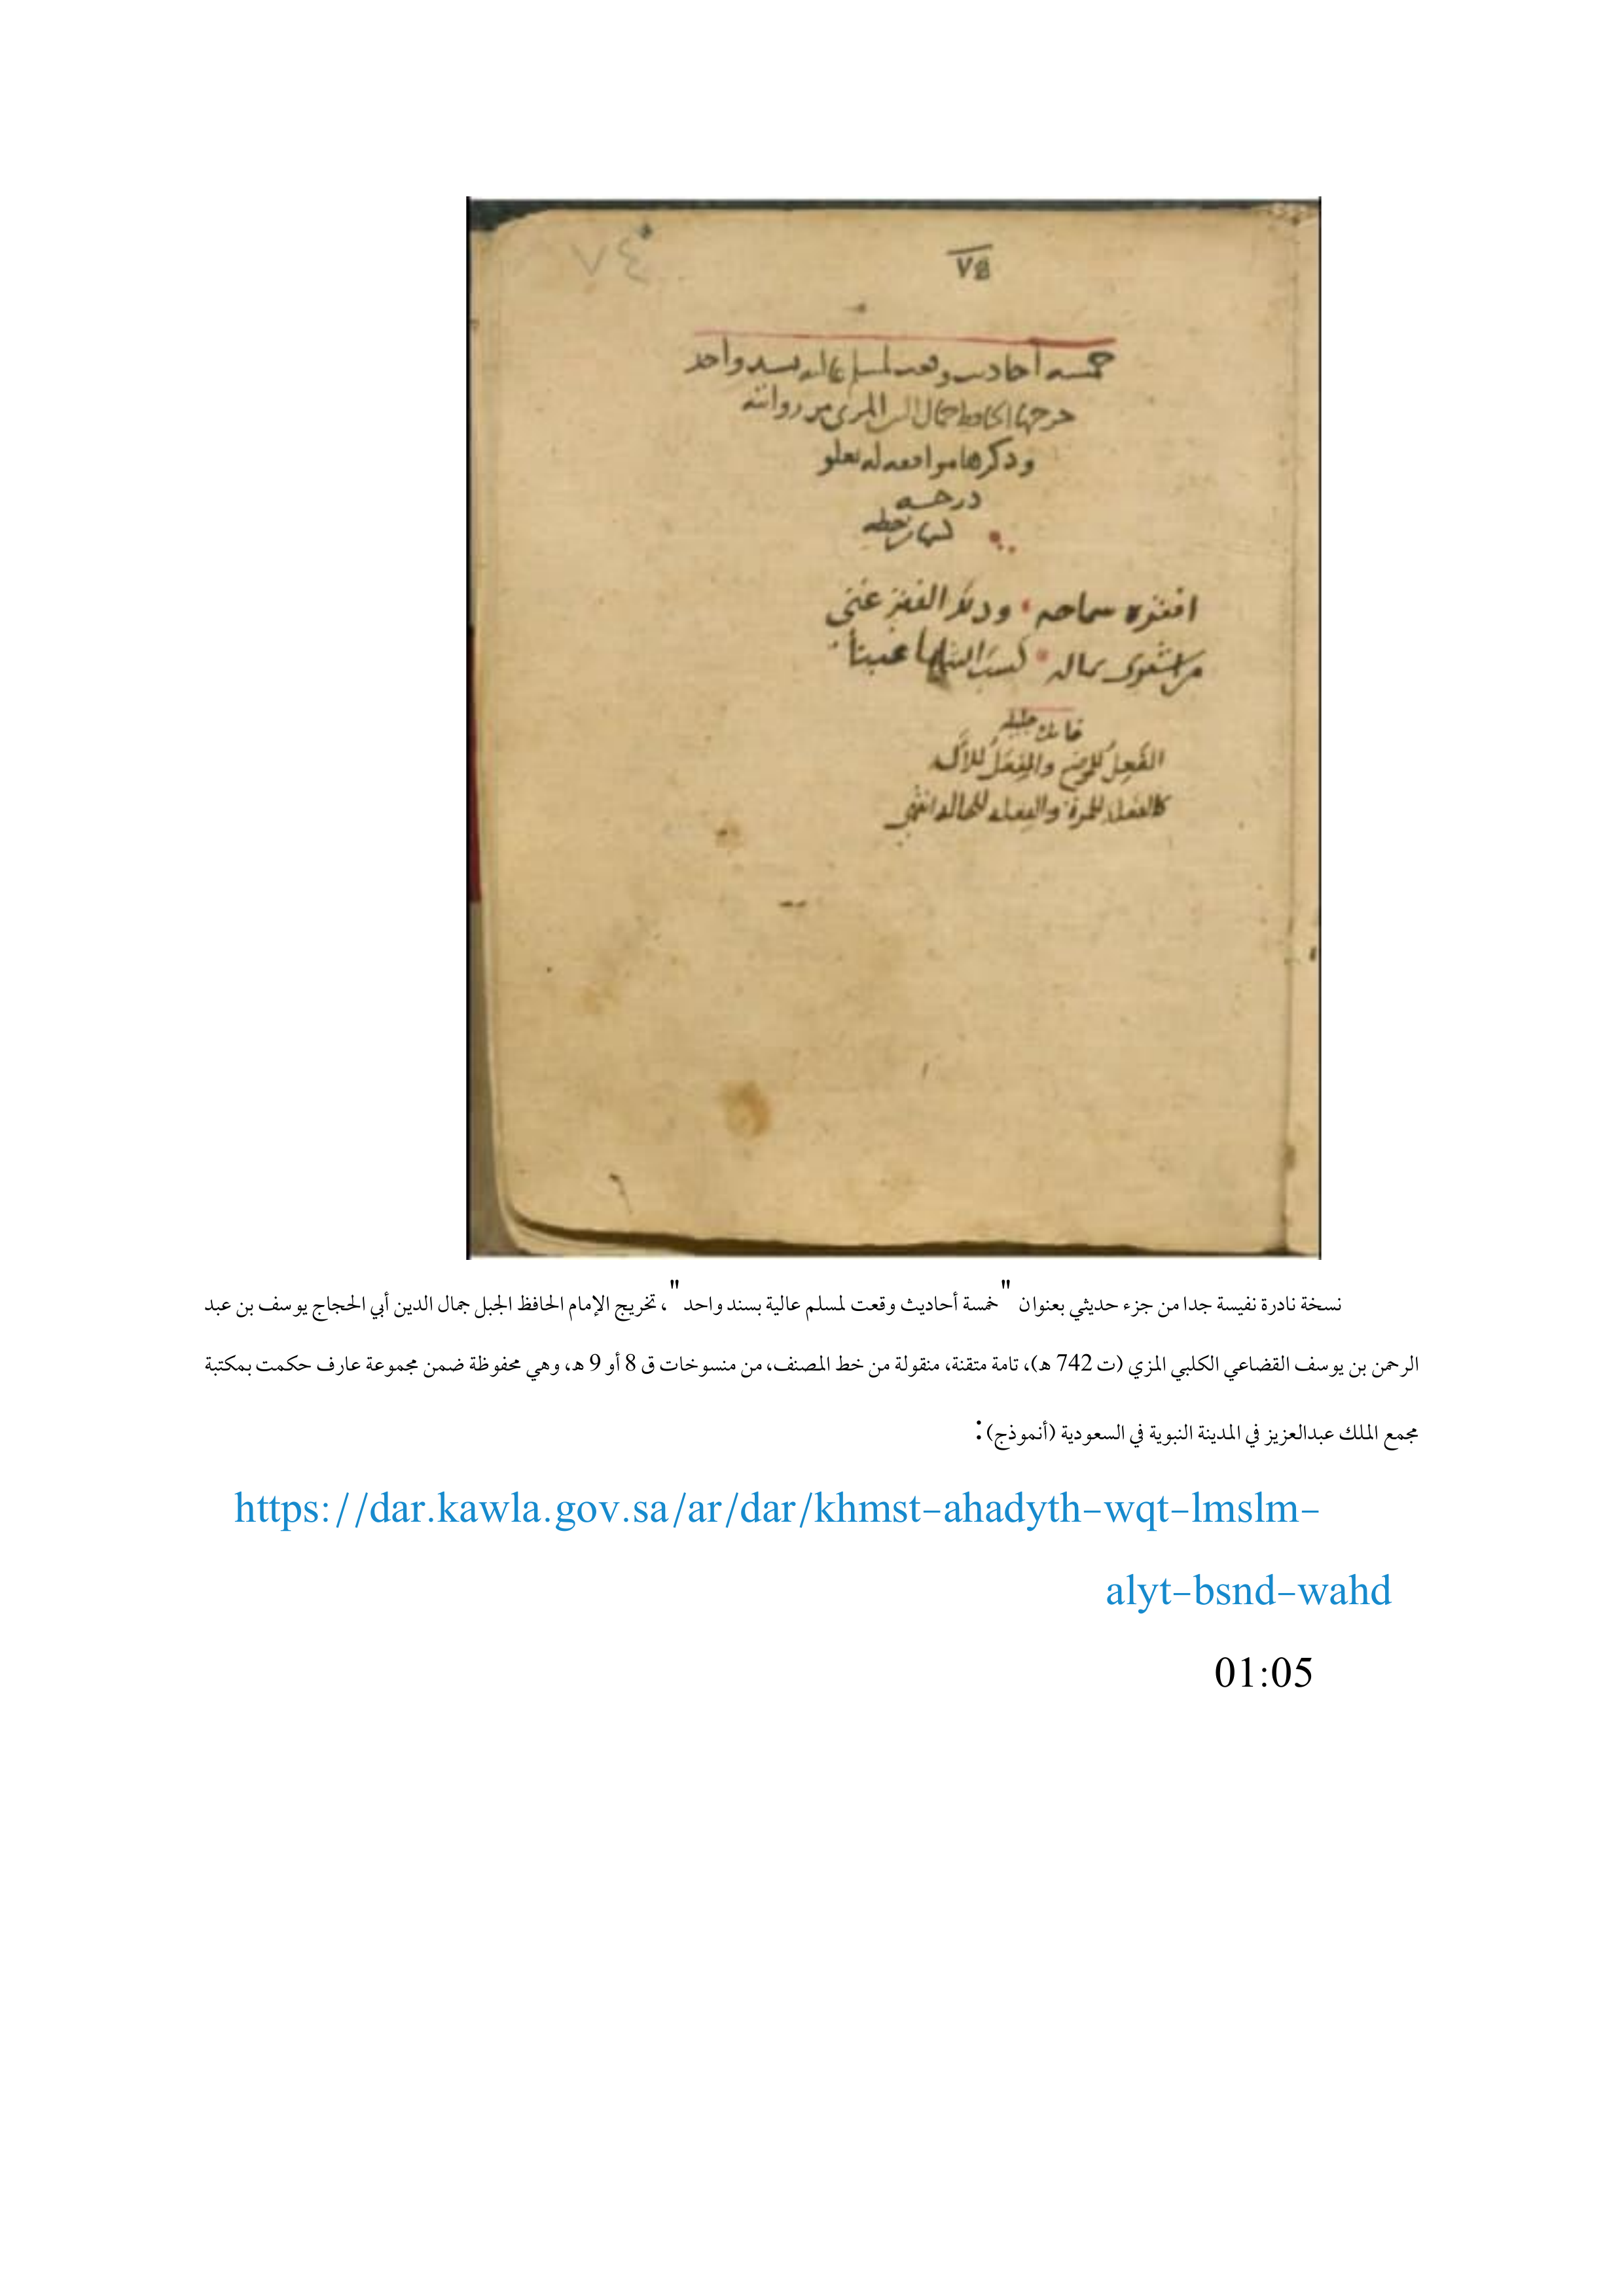 ٧٤
٧٤
خمسة أحاديث وقعت لمسلم عالية بسند واحد
خرجها الحافظ جمال الدين المزي من روايته
وذكرها موافقة له بعلو
درجة
بخطه
افتقره سماحه ودلا الفقر غنى
بماله كسب عيبا
فائدة جليلة
المَفْعِل للموضع والمِفْعَل للآلة
كالفَعلة للمرة والفِعلة للحالة انتهى
نسخة نادرة نفيسة جدا من جزء حديثي بعنوان "خمسة أحاديث وقعت لمسلم عالية بسند واحد"، تخريج الإمام الحافظ الجبل جمال الدين أبي الحجاج يوسف بن عبد
الرحمن بن يوسف القضاعي الكلبي المزي (ت 742 هـ)، تامة متقنة، منقولة من خط المصنف، من منسوخات ق 8 أو 9 هـ، وهي محفوظة ضمن مجموعة عارف حكمت بمكتبة
مجمع الملك عبدالعزيز في المدينة النبوية في السعودية (أنموذج):
https://dar.kawla.gov.sa/ar/dar/khmst-ahadyth-wqt-lmslm-
alyt-bsnd-wahd
01:05